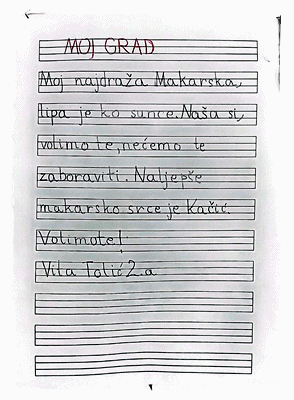 MOJ GRAD
Moj najdraža Makarska,
lipa je ko sunce. Naša si,
volimo te, nećemo te
zaboraviti. Naljepše
makarsko srce je Kačić.
Volimo te!
Vita Tolić 2.a